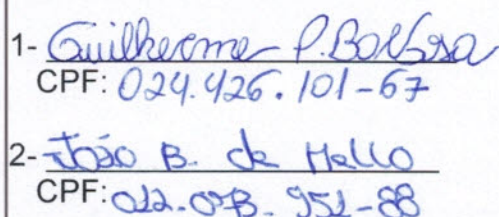 1- Guilherme P. Barbosa
CPF: 024.426.101-67
2- João B. de Mello
CPF: